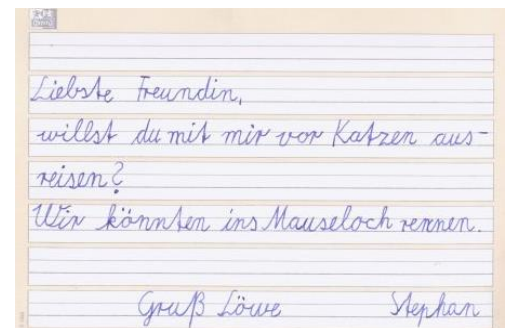 Liebste Freundin,
willst du mit mir vor Katzen aus-
reisen?
Wir könnten ins Mauseloch rennen.
Gruß Löwe Stephan